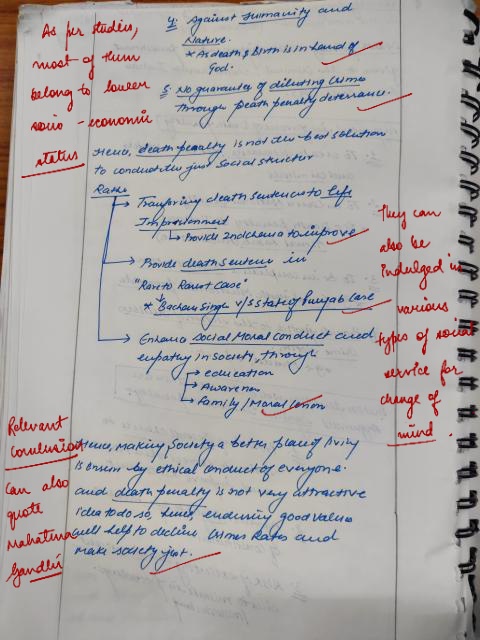 As per studies,
most of them
belong to lower
socio-economic
status
4. Against Humanity and
Nature.
* As death & Birth is in hand of
God.
5. No guarantee of diluting crimes
through Death penalty deterrance.
Hence, death penalty is not the best solution
to conduct the just social structure
Rather
→ Transfering death sentence to life
Imprisionment
↳ Provide 2nd chance to improve
→ Provide death sentence in
"Rare to Rarest Case"
* Bachan Singh v/s State of Punjab Case
→ Enhance social Moral conduct and
empathy in Society, through
→ education
→ Awareness
→ Family / Moral lesson
They can
also be
indulged in
various
types of social
service for
change of
mind.
Relevant
conclusion
can also
quote
Mahatma
Gandhi
Hence, making Society a better place of living
is by ethical conduct of everyone.
and death penalty is not very attractive
idea to do so, hence, good values
will help to decline crimes Rates and
make society just.